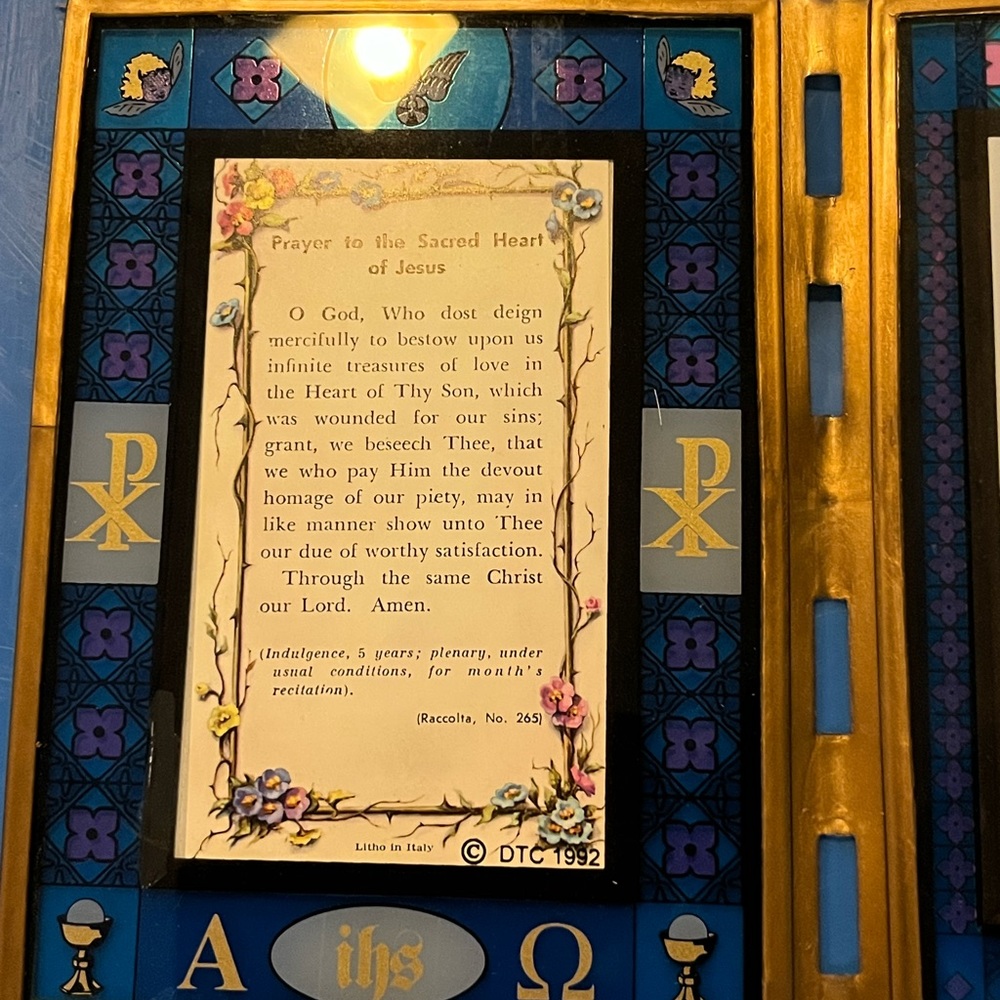 Prayer to the Sacred Heart
of Jesus
O God, Who dost deign
mercifully to bestow upon us
infinite treasures of love in
the Heart of Thy Son, which
was wounded for our sins;
grant, we beseech Thee, that
we who pay Him the devout
homage of our piety, may in
like manner show unto Thee
our due of worthy satisfaction.
Through the same Christ
our Lord. Amen.
(Indulgence, 5 years; plenary, under
usual conditions, for month's
recitation).
(Raccolta, No. 265)
Litho in Italy © DTC 1992
☧ ☧
Α ihs Ω